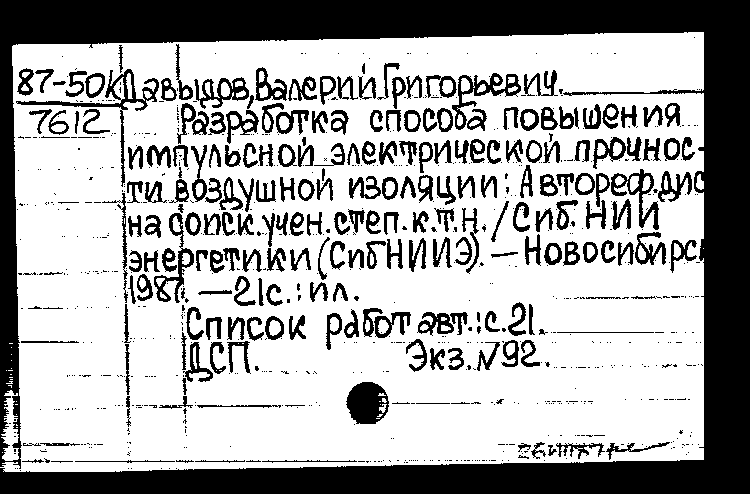 87-50к Давыдов, Валерий Григорьевич.
7612 Разработка способа повышения
импульсной электрической прочнос-
ти воздушной изоляции: Автореф. дис
на соиск. учен. степ. к.т.н. / Сиб. НИИ
энергетики (СибНИИЭ). — Новосибирск
1987. — 21с.: ил.
Список работ авт.: с. 21.
ДСП. Экз. N92.